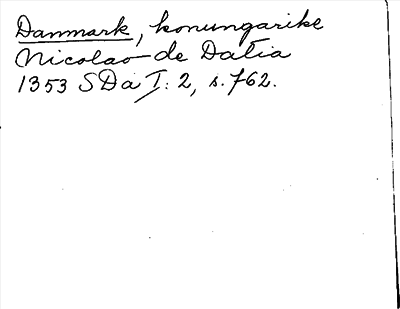 Danmark, konungarike
Nicolao de Datia
1353 SDa I: 2, s. 762.